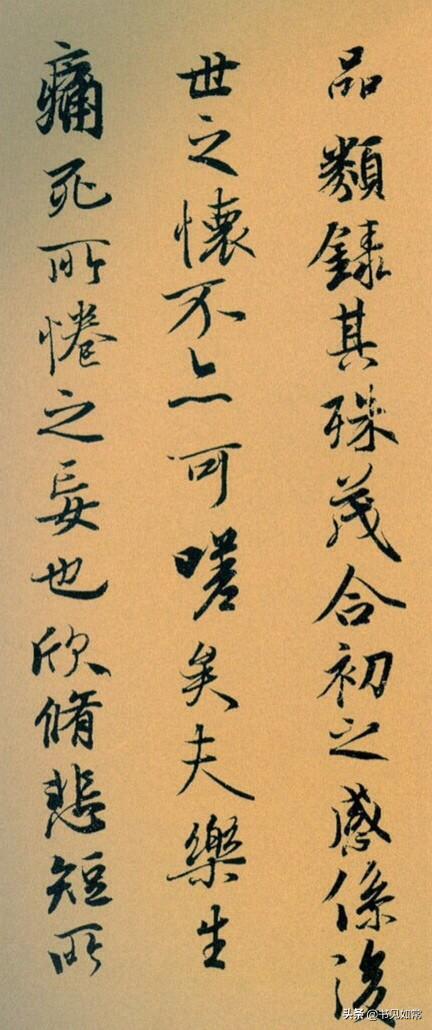 品類錄其殊茂合初之感係後
世之懷不亦可嗟矣夫樂生
痛死所惓之妄也欣脩悲短所
头条@书见如常